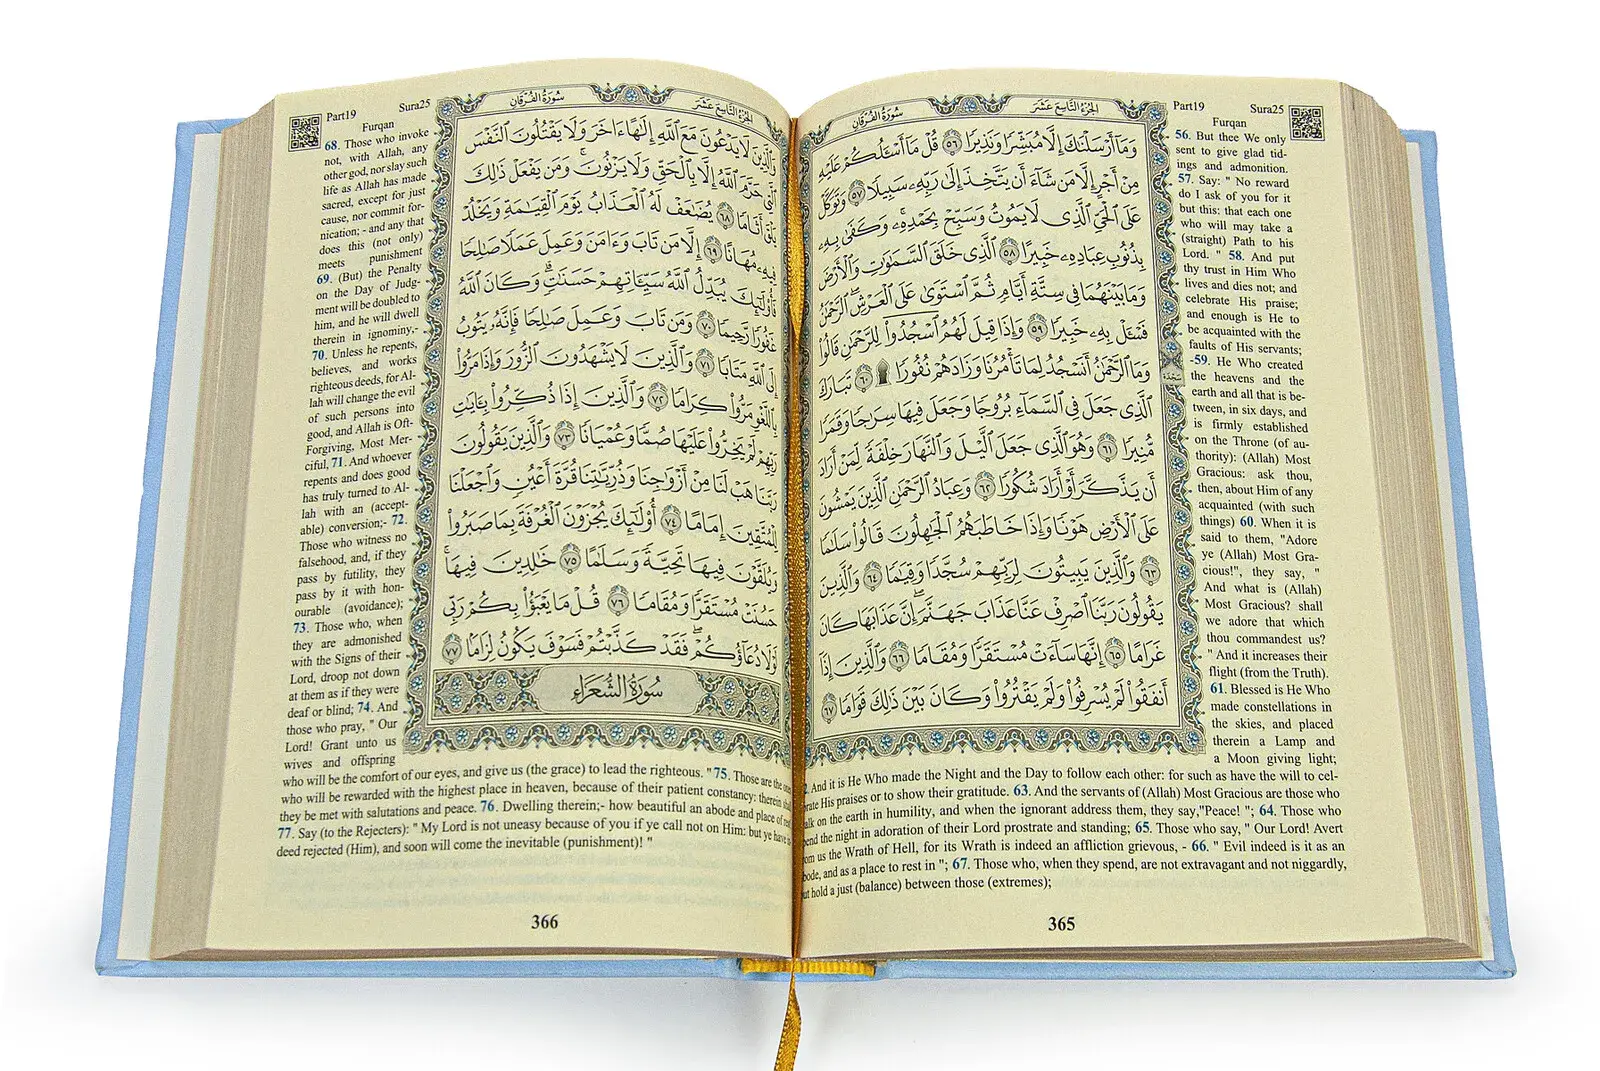 سُورَةُ الفُرقَان الجُزءُ التَّاسِعَ عَشَرَ
وَمَآ أَرۡسَلۡنَٰكَ إِلَّا مُبَشِّرٗا وَنَذِيرٗا ٥٦ قُلۡ مَآ أَسۡـَٔلُكُمۡ عَلَيۡهِ
مِنۡ أَجۡرٍ إِلَّا مَن شَآءَ أَن يَتَّخِذَ إِلَىٰ رَبِّهِۦ سَبِيلٗا ٥٧ وَتَوَكَّلۡ
عَلَى ٱلۡحَيِّ ٱلَّذِي لَا يَمُوتُ وَسَبِّحۡ بِحَمۡدِهِۦۚ وَكَفَىٰ بِهِۦ
بِذُنُوبِ عِبَادِهِۦ خَبِيرًا ٥٨ ٱلَّذِي خَلَقَ ٱلسَّمَٰوَٰتِ وَٱلۡأَرۡضَ
وَمَا بَيۡنَهُمَا فِي سِتَّةِ أَيَّامٖ ثُمَّ ٱسۡتَوَىٰ عَلَى ٱلۡعَرۡشِۖ ٱلرَّحۡمَٰنُ
فَسۡـَٔلۡ بِهِۦ خَبِيرٗا ٥٩ وَإِذَا قِيلَ لَهُمُ ٱسۡجُدُواْۤ لِلرَّحۡمَٰنِ قَالُواْ
وَمَا ٱلرَّحۡمَٰنُ أَنَسۡجُدُ لِمَا تَأۡمُرُنَا وَزَادَهُمۡ نُفُورٗا ۩ ٦٠ تَبَارَكَ
سَجْدَة
ٱلَّذِي جَعَلَ فِي ٱلسَّمَآءِ بُرُوجٗا وَجَعَلَ فِيهَا سِرَٰجٗا وَقَمَرٗا
مُّنِيرٗا ٦١ وَهُوَ ٱلَّذِي جَعَلَ ٱلَّيۡلَ وَٱلنَّهَارَ خِلۡفَةٗ لِّمَنۡ أَرَادَ
أَن يَذَّكَّرَ أَوۡ أَرَادَ شُكُورٗا ٦٢ وَعِبَادُ ٱلرَّحۡمَٰنِ ٱلَّذِينَ يَمۡشُونَ
عَلَى ٱلۡأَرۡضِ هَوۡنٗا وَإِذَا خَاطَبَهُمُ ٱلۡجَٰهِلُونَ قَالُواْ سَلَٰمٗا
٦٣ وَٱلَّذِينَ يَبِيتُونَ لِرَبِّهِمۡ سُجَّدٗا وَقِيَٰمٗا ٦٤ وَٱلَّذِينَ
يَقُولُونَ رَبَّنَا ٱصۡرِفۡ عَنَّا عَذَابَ جَهَنَّمَۖ إِنَّ عَذَابَهَا كَانَ
غَرَامًا ٦٥ إِنَّهَا سَآءَتۡ مُسۡتَقَرّٗا وَمُقَامٗا ٦٦ وَٱلَّذِينَ إِذَآ
أَنفَقُواْ لَمۡ يُسۡرِفُواْ وَلَمۡ يَقۡتُرُواْ وَكَانَ بَيۡنَ ذَٰلِكَ قَوَامٗا ٦٧
Part19 Sura25
Furqan
56. But thee We only
sent to give glad tid-
ings and admonition.
57. Say: " No reward
do I ask of you for it
but this: that each one
who will may take a
(straight) Path to his
Lord. " 58. And put
thy trust in Him Who
lives and dies not; and
celebrate His praise;
and enough is He to
be acquainted with the
faults of His servants;
-59. He Who created
the heavens and the
earth and all that is be-
tween, in six days, and
is firmly established
on the Throne (of au-
thority): (Allah) Most
Gracious: ask thou,
then, about Him of any
acquainted (with such
things) 60. When it is
said to them, "Adore
ye (Allah) Most Gra-
cious!", they say, "
And what is (Allah)
Most Gracious? shall
we adore that which
thou commandest us?
" And it increases their
flight (from the Truth).
61. Blessed is He Who
made constellations in
the skies, and placed
therein a Lamp and
a Moon giving light;
And it is He Who made the Night and the Day to follow each other: for such as have the will to cel-
His praises or to show their gratitude. 63. And the servants of (Allah) Most Gracious are those who
on the earth in humility, and when the ignorant address them, they say,"Peace! "; 64. Those who
the night in adoration of their Lord prostrate and standing; 65. Those who say, " Our Lord! Avert
us the Wrath of Hell, for its Wrath is indeed an affliction grievous, - 66. " Evil indeed is it as an
and as a place to rest in "; 67. Those who, when they spend, are not extravagant and not niggardly,
hold a just (balance) between those (extremes);
365
سُورَةُ الفُرقَان الجُزءُ التَّاسِعَ عَشَرَ
وَٱلَّذِينَ لَا يَدۡعُونَ مَعَ ٱللَّهِ إِلَٰهًا ءَاخَرَ وَلَا يَقۡتُلُونَ ٱلنَّفۡسَ
ٱلَّتِي حَرَّمَ ٱللَّهُ إِلَّا بِٱلۡحَقِّ وَلَا يَزۡنُونَۚ وَمَن يَفۡعَلۡ ذَٰلِكَ
يَلۡقَ أَثَامٗا ٦٨ يُضَٰعَفۡ لَهُ ٱلۡعَذَابُ يَوۡمَ ٱلۡقِيَٰمَةِ وَيَخۡلُدۡ
فِيهِۦ مُهَانًا ٦٩ إِلَّا مَن تَابَ وَءَامَنَ وَعَمِلَ عَمَلٗا صَٰلِحٗا
فَأُوْلَٰٓئِكَ يُبَدِّلُ ٱللَّهُ سَيِّـَٔاتِهِمۡ حَسَنَٰتٖۗ وَكَانَ ٱللَّهُ
غَفُورٗا رَّحِيمٗا ٧٠ وَمَن تَابَ وَعَمِلَ صَٰلِحٗا فَإِنَّهُۥ يَتُوبُ
إِلَى ٱللَّهِ مَتَابٗا ٧١ وَٱلَّذِينَ لَا يَشۡهَدُونَ ٱلزُّورَ وَإِذَا مَرُّواْ
بِٱللَّغۡوِ مَرُّواْ كِرَامٗا ٧٢ وَٱلَّذِينَ إِذَا ذُكِّرُواْ بِـَٔايَٰتِ
رَبِّهِمۡ لَمۡ يَخِرُّواْ عَلَيۡهَا صُمّٗا وَعُمۡيَانٗا ٧٣ وَٱلَّذِينَ يَقُولُونَ
رَبَّنَا هَبۡ لَنَا مِنۡ أَزۡوَٰجِنَا وَذُرِّيَّٰتِنَا قُرَّةَ أَعۡيُنٖ وَٱجۡعَلۡنَا
لِلۡمُتَّقِينَ إِمَامًا ٧٤ أُوْلَٰٓئِكَ يُجۡزَوۡنَ ٱلۡغُرۡفَةَ بِمَا صَبَرُواْ
وَيُلَقَّوۡنَ فِيهَا تَحِيَّةٗ وَسَلَٰمًا ٧٥ خَٰلِدِينَ فِيهَاۚ
حَسُنَتۡ مُسۡتَقَرّٗا وَمُقَامٗا ٧٦ قُلۡ مَا يَعۡبَؤُاْ بِكُمۡ رَبِّي
لَوۡلَا دُعَآؤُكُمۡۖ فَقَدۡ كَذَّبۡتُمۡ فَسَوۡفَ يَكُونُ لِزَامَۢا ٧٧
سُورَةُ الشُّعَرَاءِ
Part19 Sura25
Furqan
68. Those who invoke
not, with Allah, any
other god, nor slay such
life as Allah has made
sacred, except for just
cause, nor commit for-
nication; - and any that
does this (not only)
meets punishment
69. (But) the Penalty
on the Day of Judg-
ment will be doubled to
him, and he will dwell
therein in ignominy,-
70. Unless he repents,
believes, and works
righteous deeds, for Al-
lah will change the evil
of such persons into
good, and Allah is Oft-
Forgiving, Most Mer-
ciful, 71. And whoever
repents and does good
has truly turned to Al-
lah with an (accept-
able) conversion;- 72.
Those who witness no
falsehood, and, if they
pass by futility, they
pass by it with hon-
ourable (avoidance);
73. Those who, when
they are admonished
with the Signs of their
Lord, droop not down
at them as if they were
deaf or blind; 74. And
those who pray, " Our
Lord! Grant unto us
wives and offspring
who will be the comfort of our eyes, and give us (the grace) to lead the righteous. " 75. Those are the
who will be rewarded with the highest place in heaven, because of their patient constancy: therein
they be met with salutations and peace. 76. Dwelling therein;- how beautiful an abode and place of
77. Say (to the Rejecters): " My Lord is not uneasy because of you if ye call not on Him: but ye have
deed rejected (Him), and soon will come the inevitable (punishment)! "
366